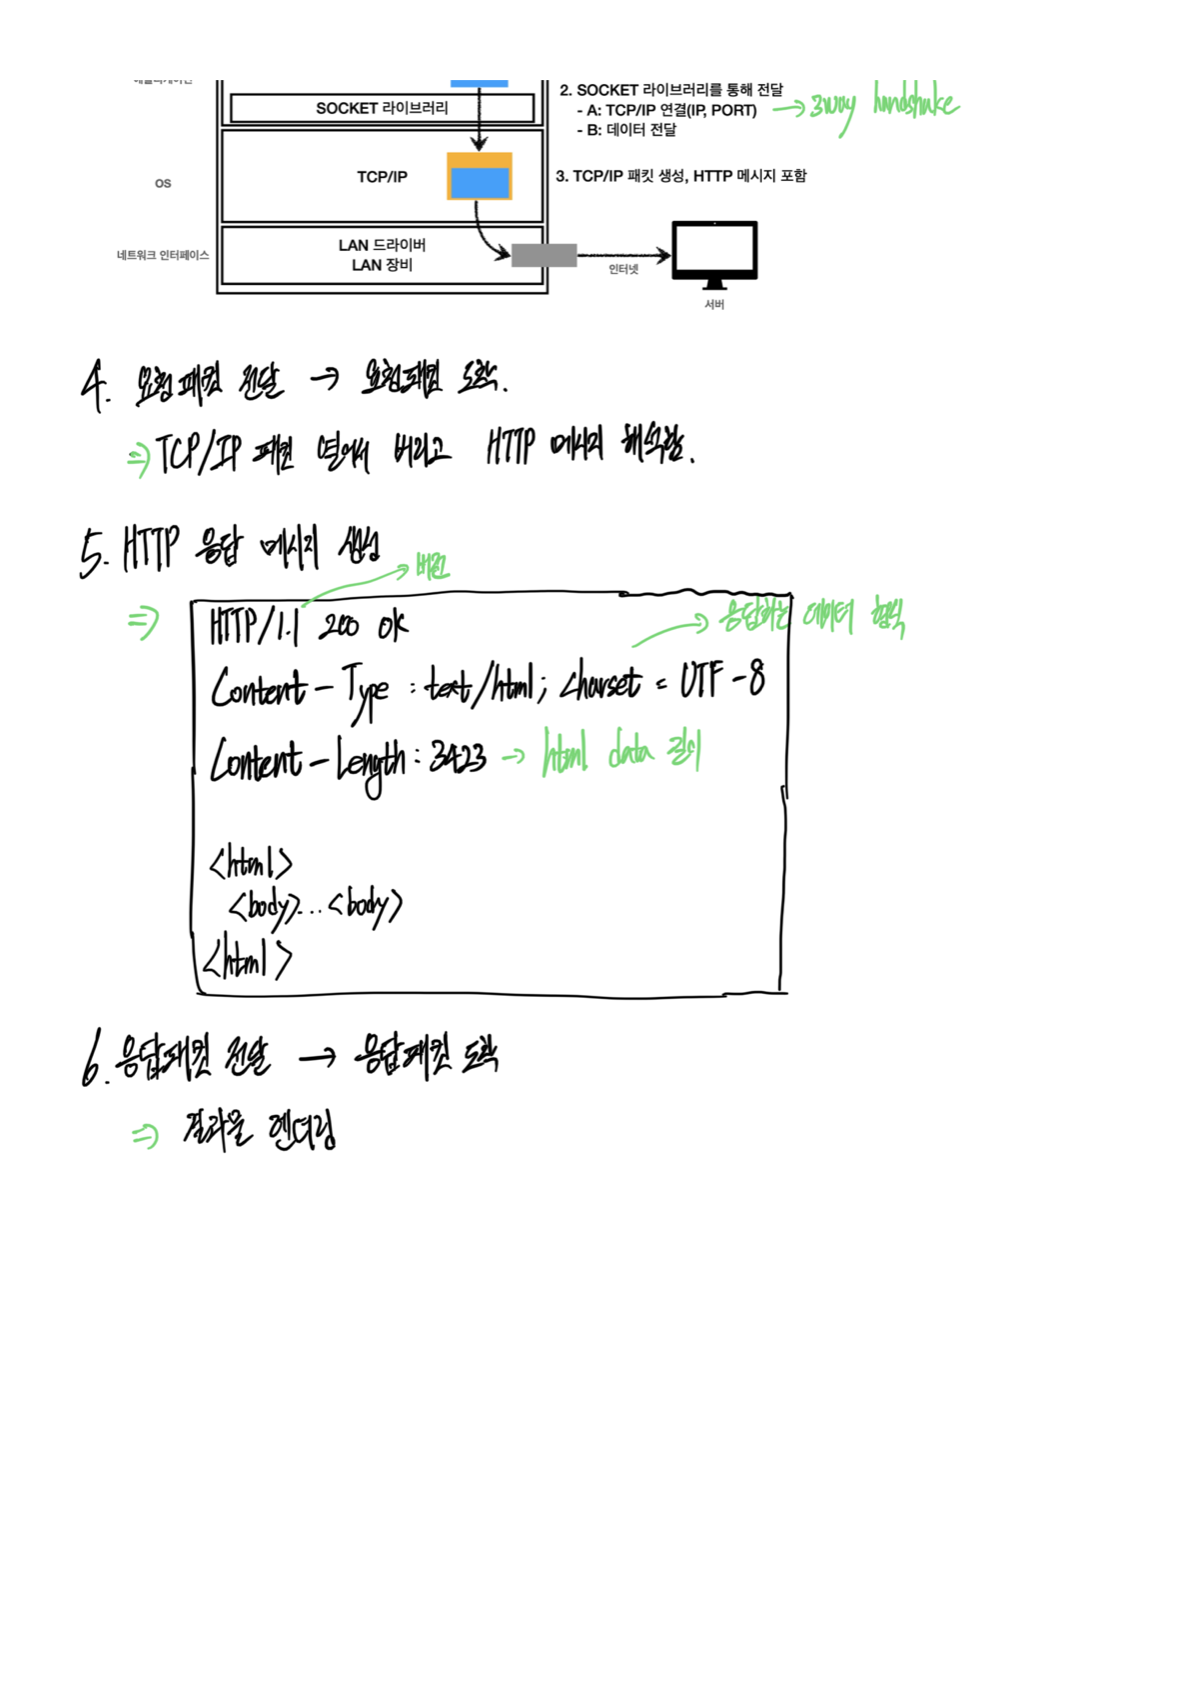 SOCKET 라이브러리
2. SOCKET 라이브러리를 통해 전달
- A: TCP/IP 연결(IP, PORT) → 3way handshake
- B: 데이터 전달
OS
TCP/IP
3. TCP/IP 패킷 생성, HTTP 메시지 포함
네트워크 인터페이스
LAN 드라이버
LAN 장비
인터넷
서버
4. 요청패킷 전달 → 요청패킷 도착.
⇒ TCP/IP 패킷 열어서 버리고 HTTP 메시지 해석함.
5. HTTP 응답 메시지 생성
→ 버전
⇒ HTTP/1.1 200 OK
→ 응답하는 데이터 형식
Content-Type : text/html; charset = UTF-8
Content-Length : 3423 → html data 길이
<html>
<body>...<body>
<html>
6. 응답패킷 전달 → 응답패킷 도착
⇒ 결과물 렌더링